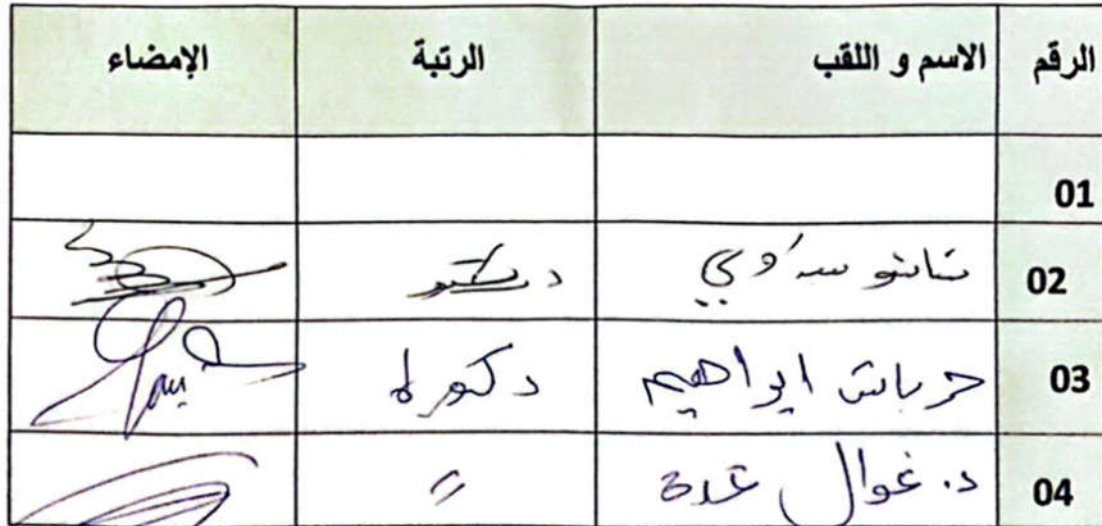 الرقم الاسم و اللقب الرتبة الإمضاء
01
02
03 حرباش ابراهيم دكتوراه
04 د. غوال عدة //